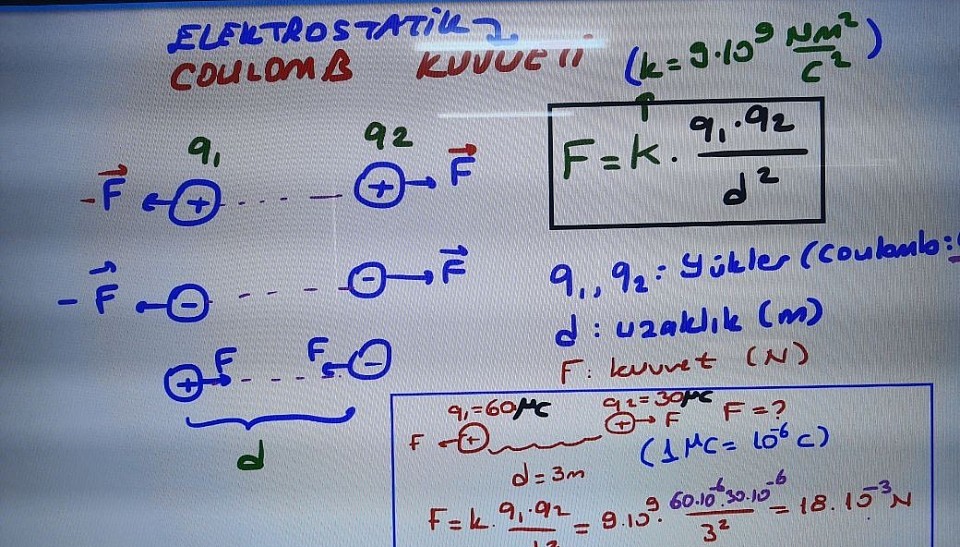 ELEKTROSTATİK 2
COULOMB KUVVETİ
(k=9·10⁹ Nm²/C²)
q₁ q₂
-F⃗ + + F⃗
F = k · q₁·q₂/d²
-F⃗ - - F⃗
q₁, q₂ : Yükler (Coulomb:
d : uzaklık (m)
+ F F -
F: kuvvet (N)
d
q₁=60μC q₂=30μC F=?
F + + F
(1μC = 10⁻⁶ C)
d = 3m
F = k. q₁.q₂/d² = 9.10⁹. 60.10⁻⁶.30.10⁻⁶/3² = 18.10⁻³ N